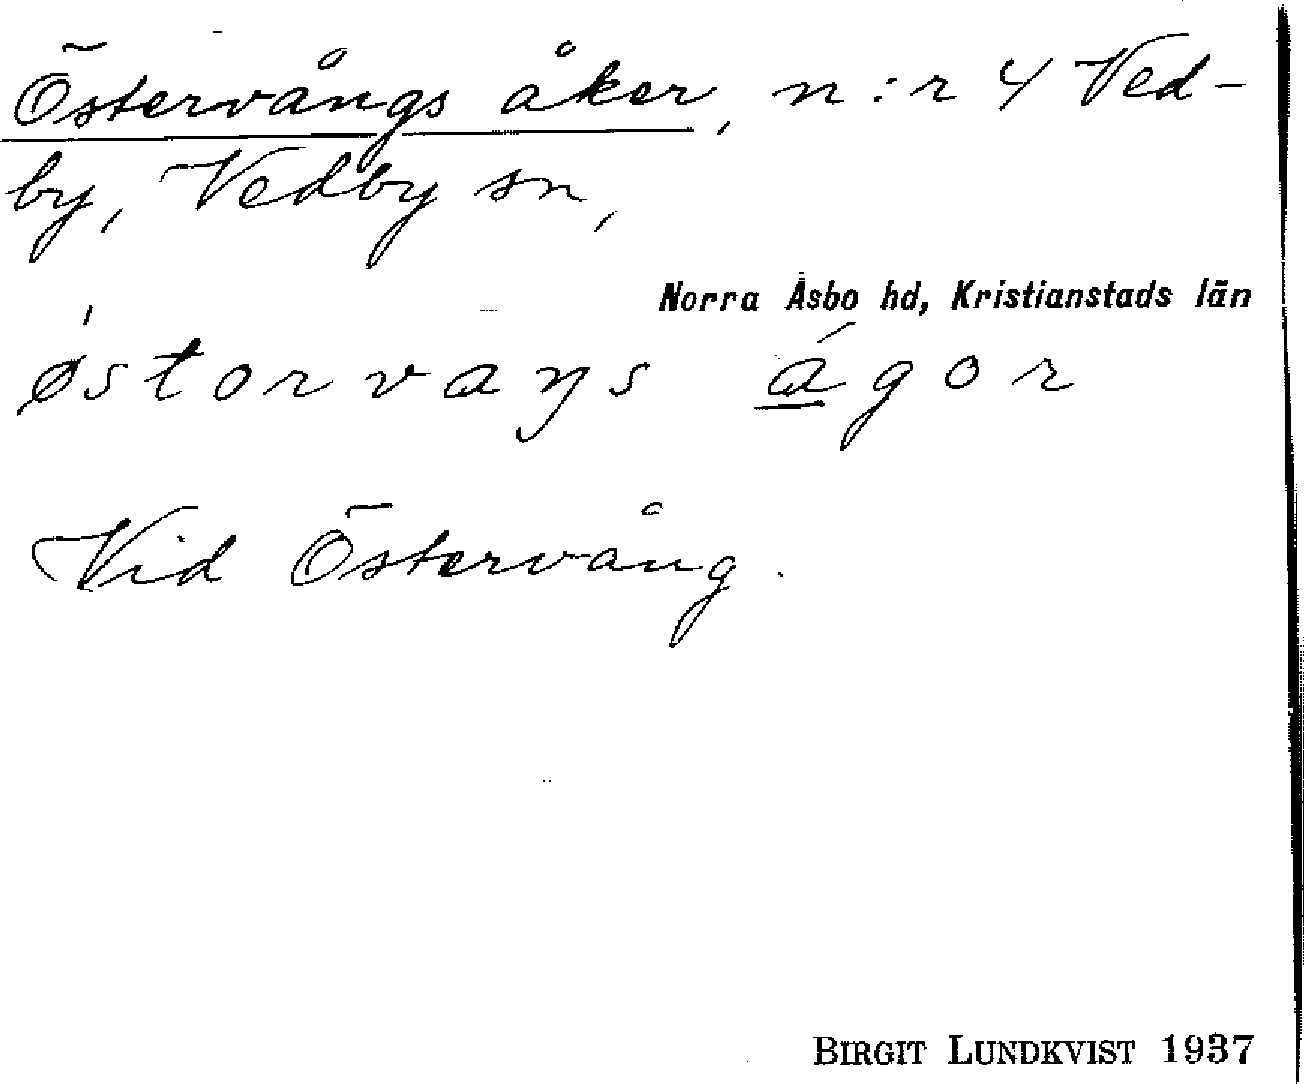 Östervångs åker, n:r 4 Ved-
by, Vedby sn,
Norra Åsbo hd, Kristianstads län
ǿstorvaŋs ágor
Vid Östervång.
BIRGIT LUNDKVIST 1937